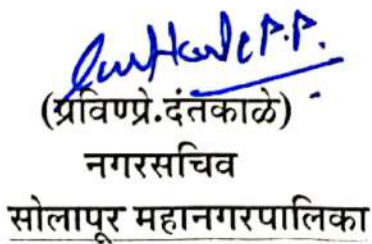 (प्रविणप्रे.दंतकाळे)
नगरसचिव
सोलापूर महानगरपालिका